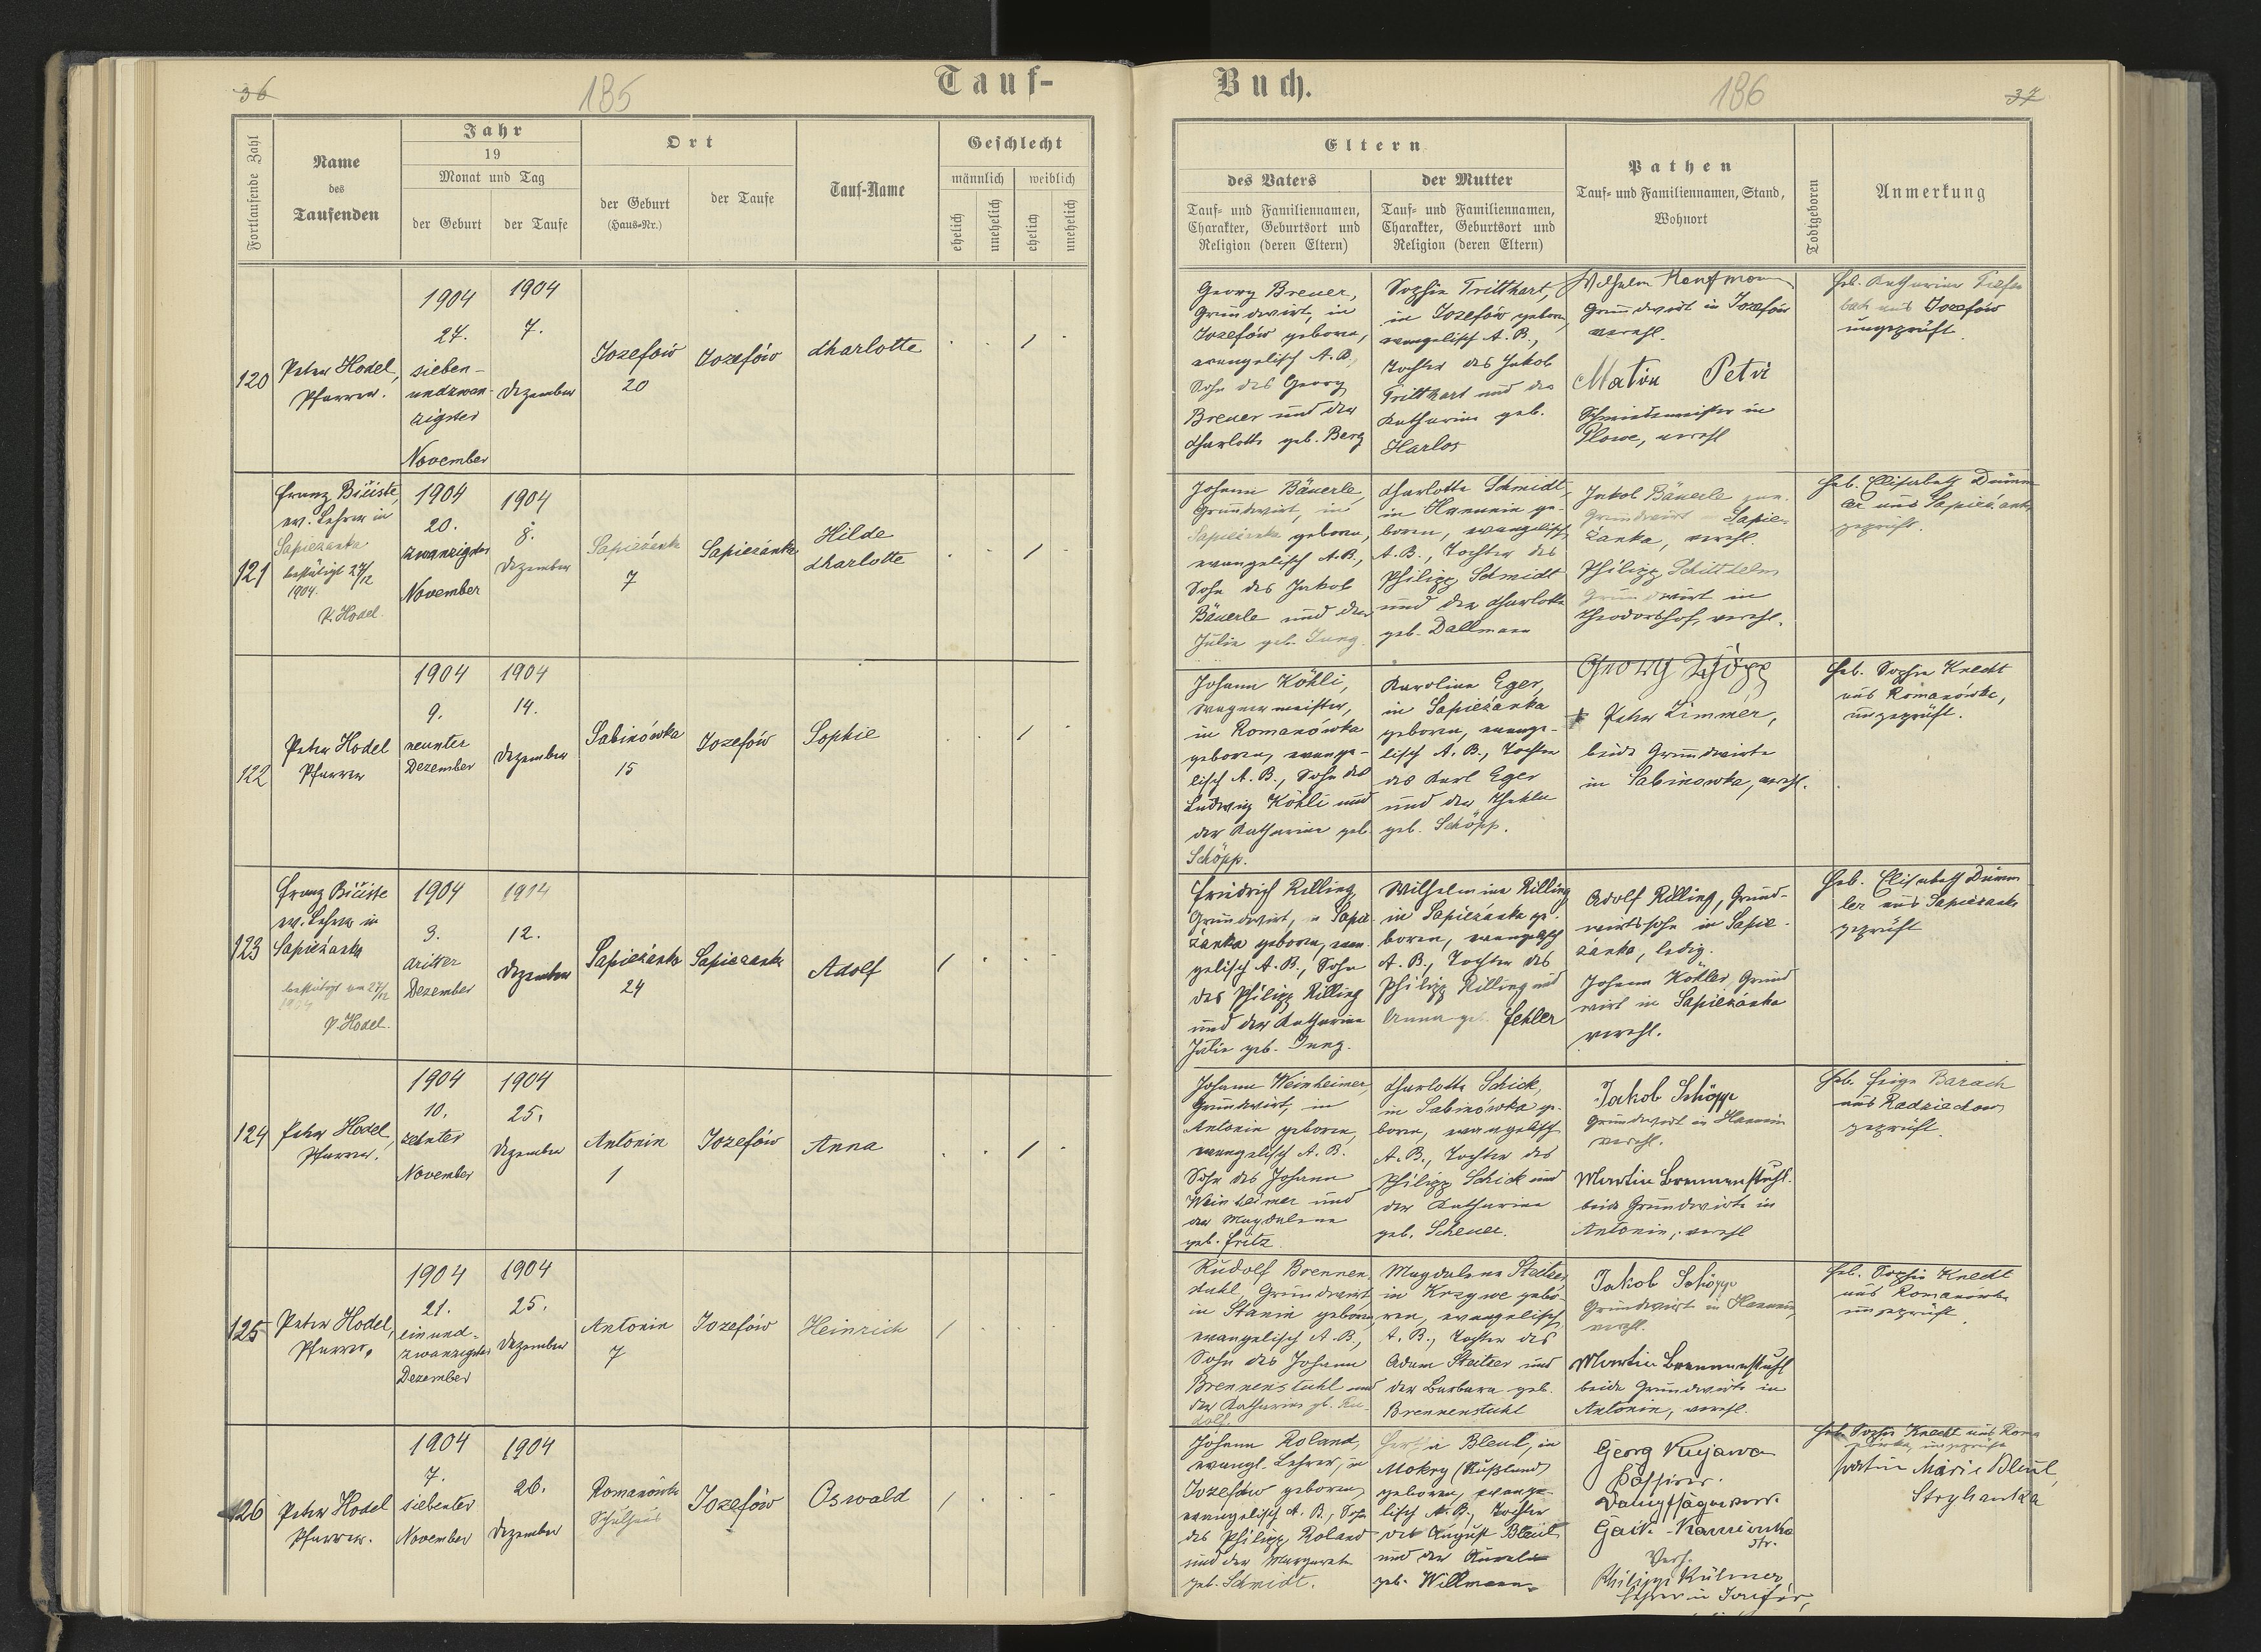 36
185
Tauf-
Fortlaufende Zahl
Name
des
Taufenden
Jahr
19
Monat und Tag
der Geburt
der Taufe
Ort
der Geburt
(Haus-Nr.)
der Taufe
Tauf-Name
Geschlecht
männlich
weiblich
ehelich
unehelich
ehelich
unehelich
120
Peter Hodel,
Pfarrer.
1904
27.
sieben-
undzwan-
zigster
November
1904
7.
Dezember
Jozefów
20
Jozefów
Charlotte
121
Franz Bičiste,
ev. Lehrer in
Sapieżanka
bestätigt 27/12
1904.
P. Hodel.
1904
20.
zwanzigster
November
1904
8.
Dezember
Sapieżanka
7
Sapieżanka
Hilde
Charlotte
122
Peter Hodel
Pfarrer
1904
9.
neunter
Dezember
1904
14.
Dezember
Sabinówka
15
Jozefów
Sophie
123
Franz Bičiste
ev. Lehrer in
Sapieżanka
bestätigt am 27/12
1904
P. Hodel.
1904
3.
dritter
Dezember
1904
12.
Dezember
Sapieżanka
24
Sapieżanka
Adolf
124
Peter Hodel,
Pfarrer.
1904
10.
zehnter
November
1904
25.
Dezember
Antonin
1
Jozefów
Anna
125
Peter Hodel,
Pfarrer.
1904
21.
einund-
zwanzigster
Dezember
1904
25.
Dezember
Antonin
7
Jozefów
Heinrich
126
Peter Hodel
Pfarrer.
1904
7.
siebenter
November
1904
26.
Dezember
Romanówka
Schulhaus
Jozefów
Oswald
Buch.
186
37
Eltern
des Vaters
Tauf- und Familiennamen,
Charakter, Geburtsort und
Religion (deren Eltern)
der Mutter
Tauf- und Familiennamen,
Charakter, Geburtsort und
Religion (deren Eltern)
Pathen
Tauf- und Familiennamen, Stand,
Wohnort
Todtgeboren
Anmerkung
Georg Breuer,
Grundwirt, in
Jozefów geboren,
evangelisch A. B.,
Sohn des Georg
Breuer und der
Charlotte geb. Berg
Sophie Tritthart,
in Jozefów geboren,
evangelisch A. B.,
Tochter des Jakob
Tritthart und der
Katharine geb.
Harlos
Wilhelm Kauffmann
Grundwirt in Jozefów
verehl.
Petri
Schmiedemeister in
verehl
Heb. Katharine Tiefen
bach aus Jozefów
ungeprüft.
Johann Bäuerle,
Grundwirt, in
Sapieżanka geboren,
evangelisch A. B.,
Sohn des Jakob
Bäuerle und der
Julie geb. Jung.
Charlotte Schmidt,
in Hanunin ge-
boren, evangelisch
A. B., Tochter des
Philipp Schmidt
und der Charlotte
geb. Dallmann
Jakob Bäuerle jun.
Grundwirt in Sapie-
żanka, verehl.
Philipp Schitthelm
Grundwirt in
Theodorshof, verehl.
Heb. Elisabeth Dümm
ler aus Sapieżanka
geprüft.
Johann Köhli,
Wagnermeister,
in Romanówka
geboren, evange-
lisch A. B., Sohn des
Ludwig Köhli und
der Katharine geb.
Schöpp.
Karoline Eger,
in Sapieżanka
geboren, evange-
lisch A. B., Tochter
des Karl Eger
und der Thekla
geb. Schöpp.
Georg Schöpp
+ Peter Zimmer,
beide Grundwirte
in Sabinowka, verehl.
Heb. Sophie Knecht
aus Romanówka,
ungeprüft.
Friedrich Rilling,
Grundwirt, in Sapie-
żanka geboren, evan-
gelisch A. B., Sohn
des Philipp Rilling
und der Katharine
Julie geb. Jung.
Wilhelmine Rilling
in Sapieżanka ge-
boren, evangelisch
A. B., Tochter des
Philipp Rilling und
Anna geb. Fehler
Adolf Rilling, Grund-
wirtssohn in Sapie-
żanka, ledig.
Johann Köhler, Grund
wirt in Sapieżanka
verehl.
Heb. Elisabeth Dümm
ler aus Sapieżanka
geprüft
Johann Weinheimer,
Grundwirt, in
Antonin geboren,
evangelisch A. B.
Sohn des Johann
Weinheimer und
der Magdalena
geb. Fritz.
Charlotte Schick,
in Sabinówka ge-
boren, evangelisch
A. B., Tochter des
Philipp Schick und
der Katharine
geb. Scheuer.
Jakob Schöpp
Grundwirt in Hanunin
verehl.
Martin Brennenstuhl.
beide Grundwirte in
Antonin, verehl
Heb. Feige Barach
aus Radziechow
geprüft.
Rudolf Brennen
stuhl, Grundwirt
in Stanin geboren,
evangelisch A. B.,
Sohn des Johann
Brennenstuhl und
der Katharine gb. Ru-
dolf.
Magdalena Steitzer,
in Krzywe gebo-
ren, evangelisch
A. B., Tochter des
Adam Steitzer und
der Barbara geb.
Brennenstuhl
Jakob Schöpp
Grundwirt in Hanunin,
verehl.
Martin Brennenstuhl
beide Grundwirte in
Antonin, verehl.
Heb. Sophie Knecht
aus Romanówka
ungeprüft.
Johann Roland,
evangl. Lehrer, in
Jozefów geboren,
evangelisch A. B., Sohn
des Philipp Roland
und der Margarete
geb. Schmidt.
Bleul, in
Mokry (Rußland)
geboren, evange-
lisch A. B., Tochter
des August Bleul
und der
geb. Willmann.
Georg Kujawa
Verh.
Philipp Külmer
Lehrer in Josefów,
Heb. Sophie Knecht aus Roma
nówka, ungeprüft
Patin Marie Bleul,
Stryhanka